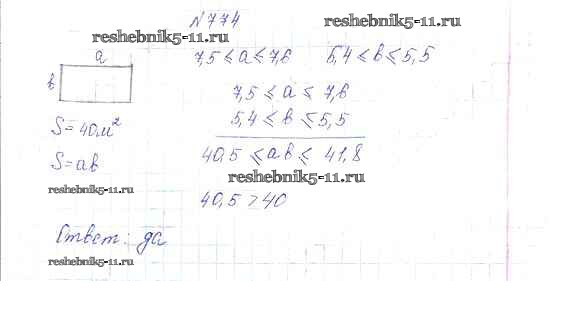 №774
reshebnik5-11.ru
reshebnik5-11.ru
a
7,5 ≤ a ≤ 7,6
5,4 ≤ в ≤ 5,5
в
7,5 ≤ a ≤ 7,6
5,4 ≤ в ≤ 5,5
S=40м²
40,5 ≤ aв ≤ 41,8
S=aв
reshebnik5-11.ru
reshebnik5-11.ru
40,5 > 40
Ответ: да
reshebnik5-11.ru